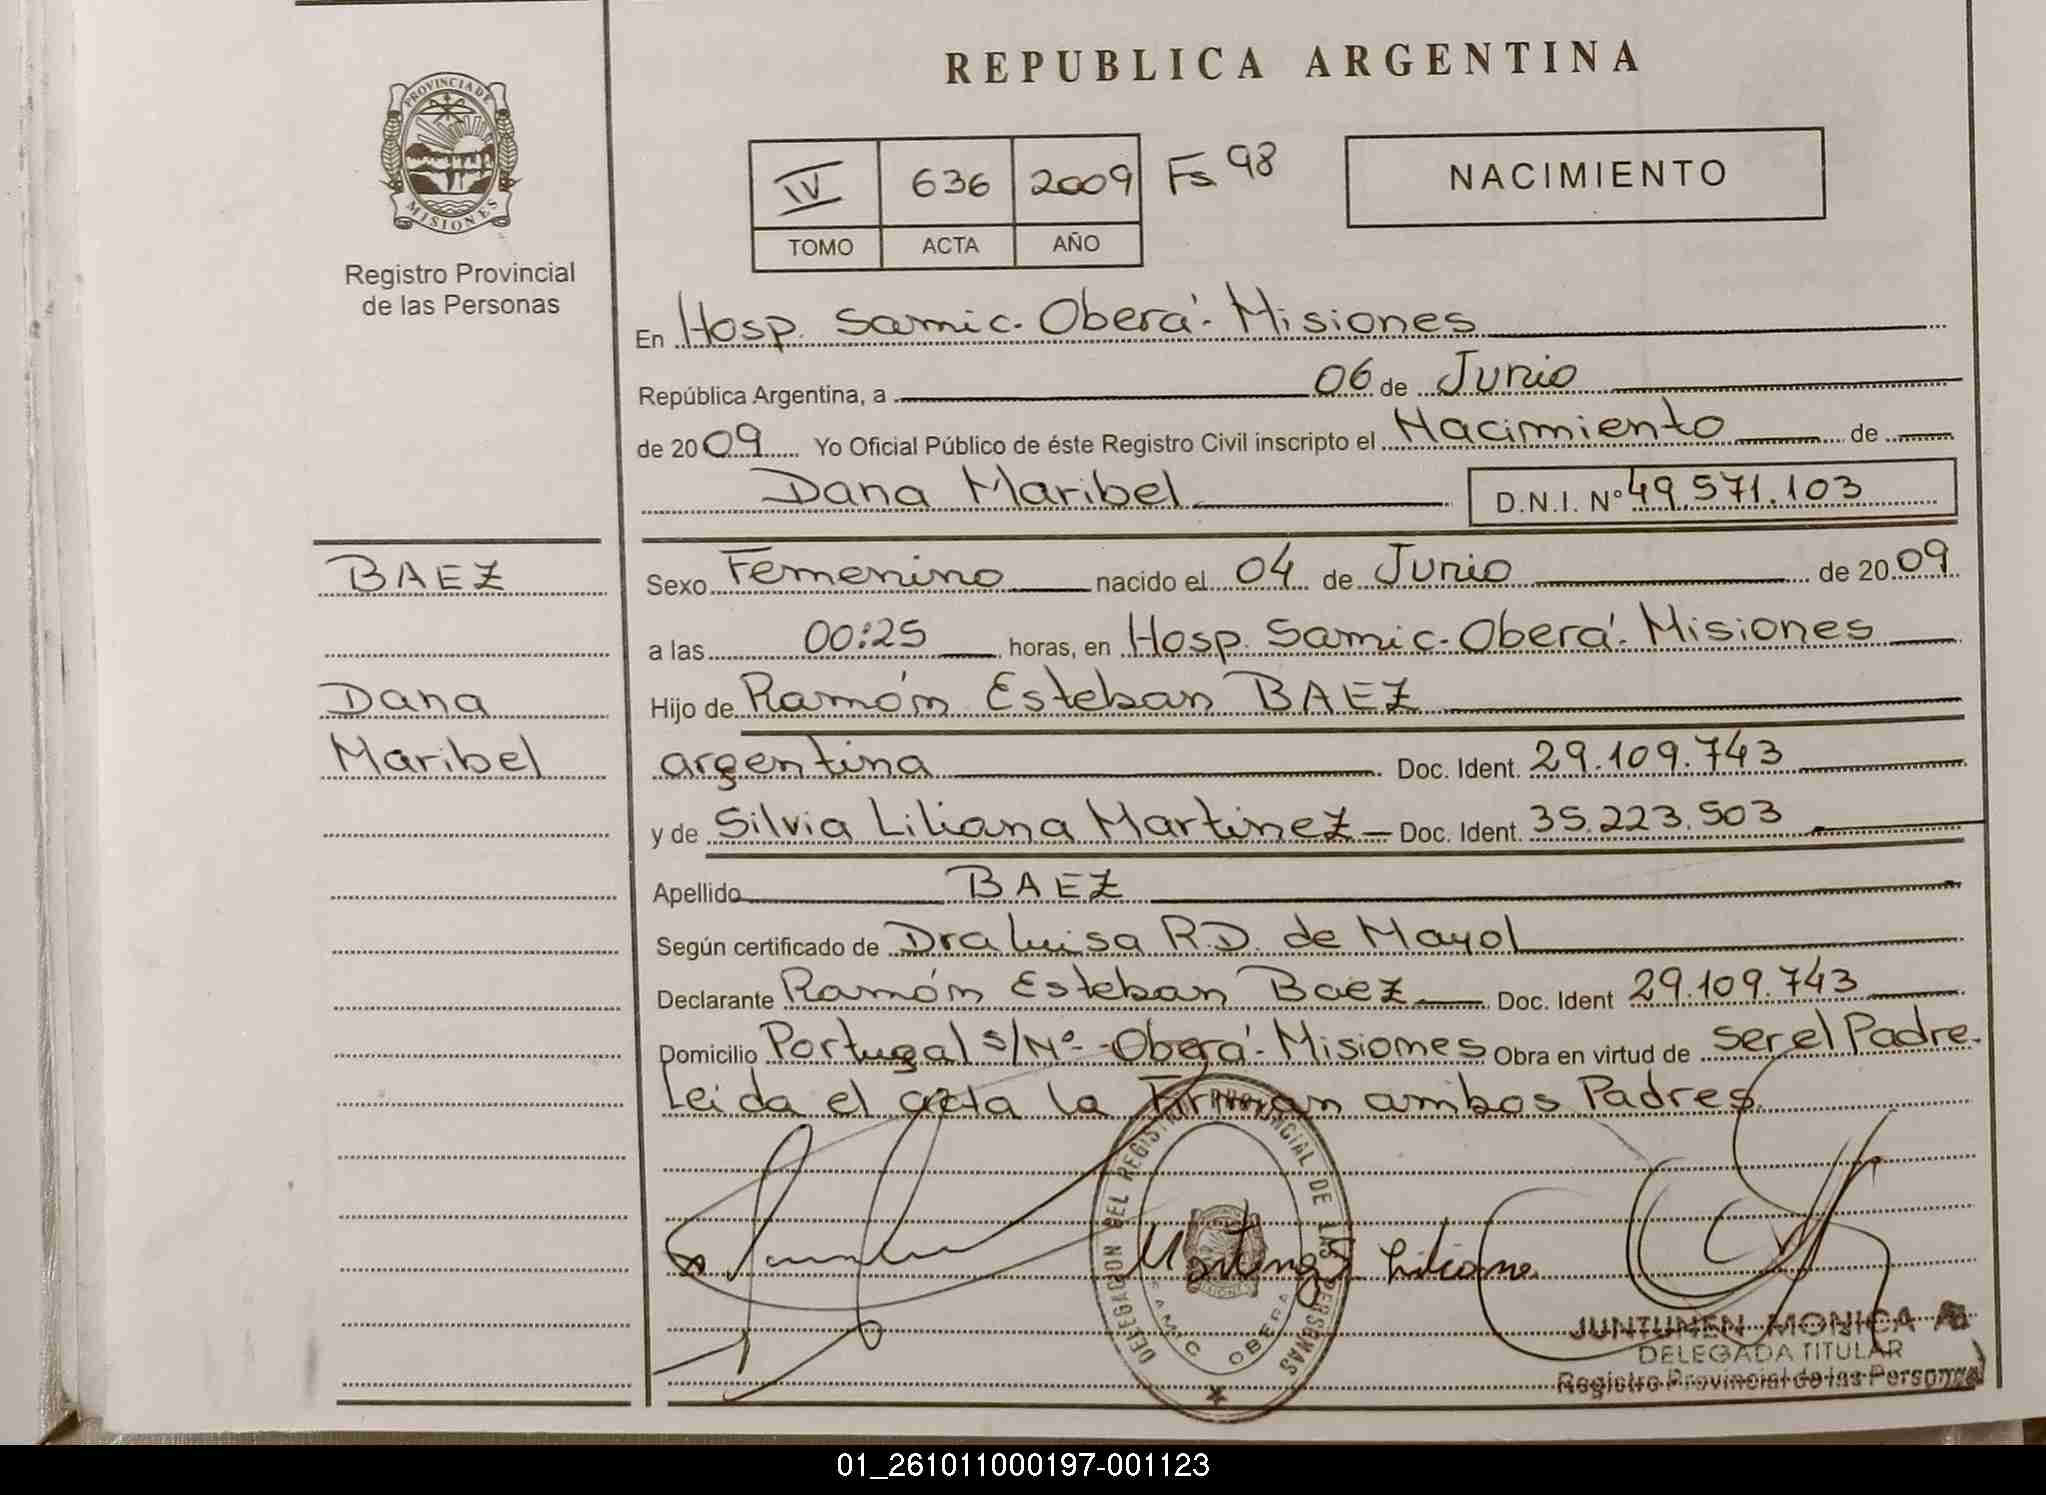 REPUBLICA ARGENTINA
PROVINCIA DE
MISIONES
Registro Provincial
de las Personas
IV 636 2009 Fs 98
TOMO ACTA AÑO
NACIMIENTO
En Hosp. Samic. Oberá. Misiones
República Argentina, a 06 de Junio
de 2009 Yo Oficial Público de éste Registro Civil inscripto el Nacimiento de
Dana Maribel D.N.I. Nº 49.571.103
BAEZ
Dana
Maribel
Sexo Femenino nacido el 04 de Junio de 2009
a las 00:25 horas, en Hosp. Samic. Oberá. Misiones
Hijo de Ramón Esteban BAEZ
argentina Doc. Ident. 29.109.743
y de Silvia Liliana Martinez Doc. Ident. 35.223.503
Apellido BAEZ
Según certificado de Dra Luisa R.D. de Mayol
Declarante Ramón Esteban Baez Doc. Ident 29.109.743
Domicilio Portugal s/Nº - Oberá. Misiones Obra en virtud de ser el Padre.
Leida el acta la Firman ambos Padres
DELEGACION DEL REGISTRO PROVINCIAL DE LAS PERSONAS
SAMIC OBERA
Martinez Liliana
JUNTUNEN MONICA
DELEGADA TITULAR
Registro Provincial de las Personas
01_261011000197-001123